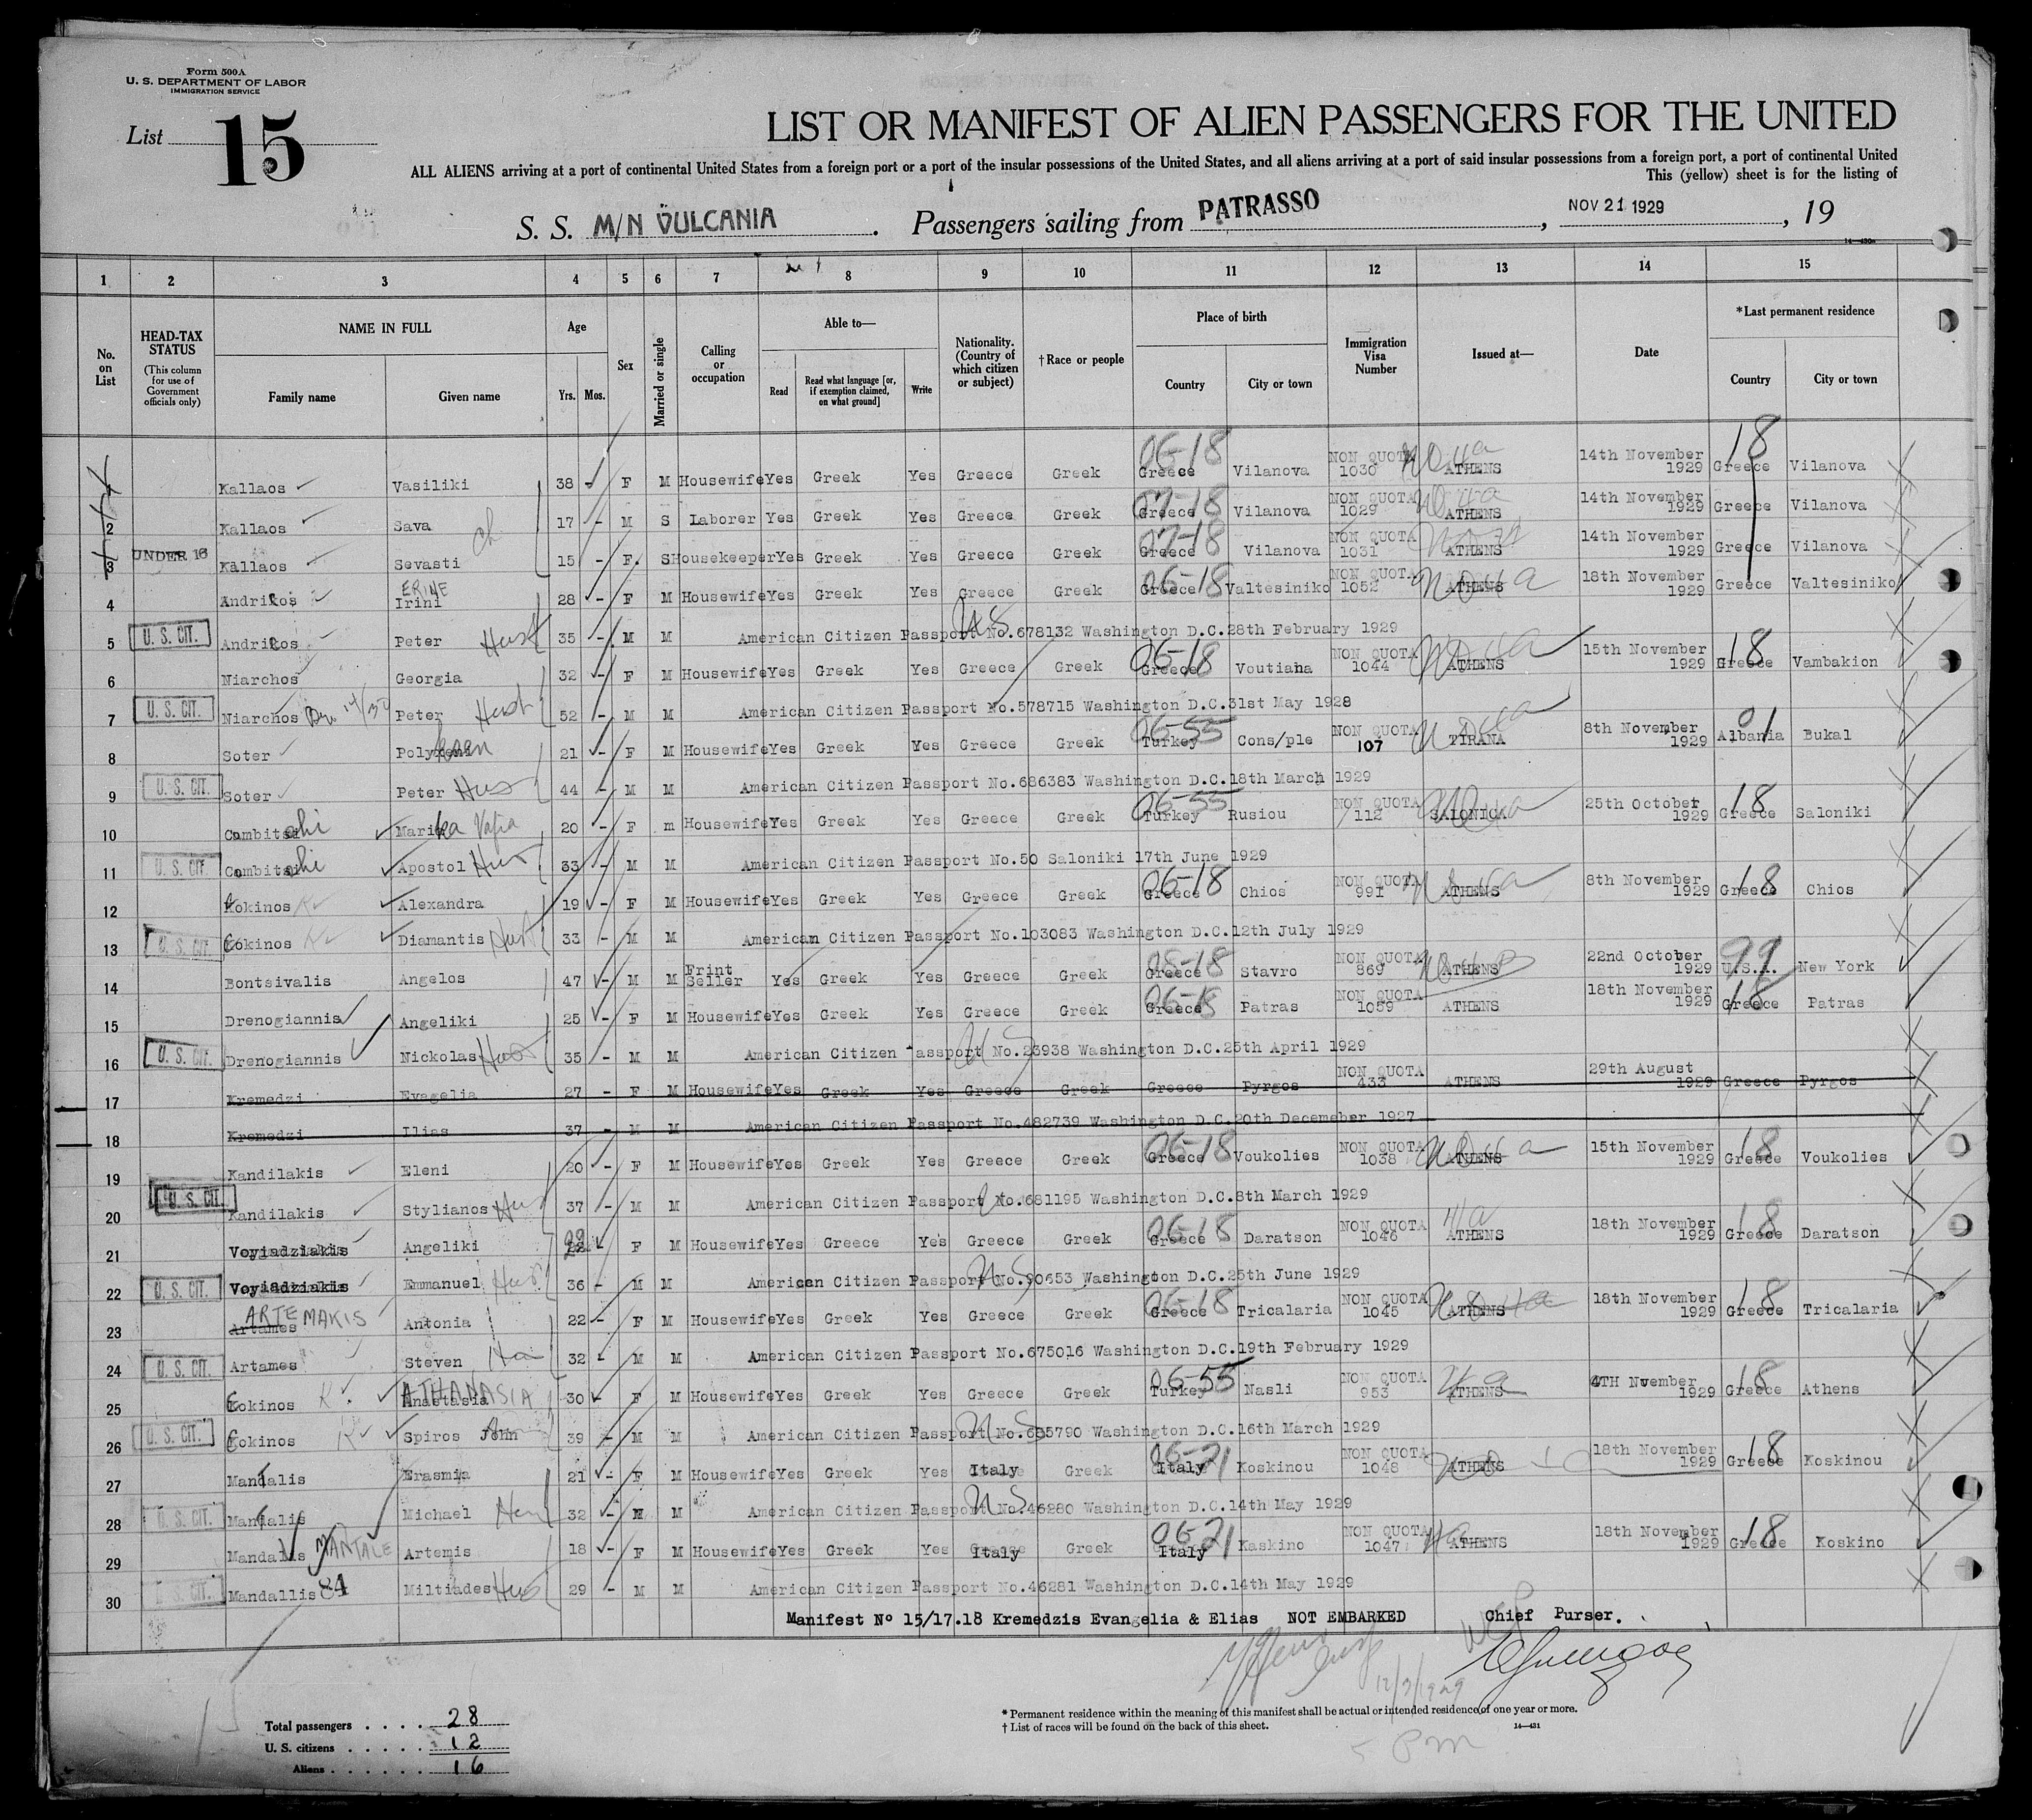 Form 500A
U. S. DEPARTMENT OF LABOR
IMMIGRATION SERVICE
List 15
LIST OR MANIFEST OF ALIEN PASSENGERS FOR THE UNITED
ALL ALIENS arriving at a port of continental United States from a foreign port or a port of the insular possessions of the United States, and all aliens arriving at a port of said insular possessions from a foreign port, a port of continental United
This (yellow) sheet is for the listing of
S. S. M/N VULCANIA. Passengers sailing from PATRASSO, NOV 21 1929, 19
14—430a
1 2 3 4 5 6 7 8 9 10 11 12 13 14 15
No. on List
HEAD-TAX STATUS (This column for use of Government officials only)
NAME IN FULL Family name Given name
Age Yrs. Mos.
Sex
Married or single
Calling or occupation
Able to— Read Read what language [or, if exemption claimed, on what ground] Write
Nationality. (Country of which citizen or subject)
† Race or people
Place of birth Country City or town
Immigration Visa Number
Issued at—
Date
*Last permanent residence Country City or town
Kallaos Vasiliki 38 - F M Housewife Yes Greek Yes Greece Greek 06-18 Greece Vilanova NON QUOTA 1030 ATHENS 14th November 1929 18 Greece Vilanova
2 Kallaos Sava ch 17 - M S Laborer Yes Greek Yes Greece Greek 07-18 Greece Vilanova NON QUOTA 1029 ATHENS 14th November 1929 Greece Vilanova
3 UNDER 16 Kallaos Sevasti 15 - F. S Housekeeper Yes Greek Yes Greece Greek 07-18 Greece Vilanova NON QUOTA 1031 ATHENS 14th November 1929 Greece Vilanova
4 Andrikos ERINE Irini 28 - F M Housewife Yes Greek Yes Greece Greek 06-18 Greece Valtesiniko NON QUOTA 1052 ATHENS 18th November 1929 Greece Valtesiniko
5 U. S. CIT. Andrikos Peter Hust 35 - M M American Citizen Passport No.678132 Washington D.C.28th February 1929
6 Niarchos Georgia 32 - F M Housewife Yes Greek Yes Greece Greek 06-18 Greece Voutiana NON QUOTA 1044 ATHENS 15th November 1929 18 Greece Vambakion
7 U. S. CIT. Niarchos Peter Hust 52 - M M American Citizen Passport No.578715 Washington D.C.31st May 1928
8 Soter Polyxeni 21 - F M Housewife Yes Greek Yes Greece Greek 06-55 Turkey Cons/ple NON QUOTA 107 TIRANA 8th November 1929 01 Albania Bukal
9 U. S. CIT. Soter Peter Hus 44 - M M American Citizen Passport No.686383 Washington D.C.18th March 1929
10 Cambitsi Marika 20 - F m Housewife Yes Greek Yes Greece Greek 06-55 Turkey Rusiou NON QUOTA 112 SALONICA 25th October 1929 18 Greece Saloniki
11 U. S. CIT. Cambitsi Apostol Hus 33 - M M American Citizen Passport No.50 Saloniki 17th June 1929
12 Kokinos Alexandra 19 - F M Housewife Yes Greek Yes Greece Greek 06-18 Greece Chios NON QUOTA 991 ATHENS 8th November 1929 18 Greece Chios
13 U. S. CIT. Kokinos Diamantis Hust 33 - M M American Citizen Passport No.103083 Washington D.C.12th July 1929
14 Bontsivalis Angelos 47 - M M Frint Seller Yes Greek Yes Greece Greek 08-18 Greece Stavro NON QUOTA 869 ATHENS 22nd October 1929 99 U.S.A. New York
15 Drenogiannis Angeliki 25 - F M Housewife Yes Greek Yes Greece Greek 06-18 Greece Patras NON QUOTA 1059 ATHENS 18th November 1929 18 Greece Patras
16 U. S. CIT. Drenogiannis Nickolas Hus 35 - M M American Citizen Passport No.23938 Washington D.C.25th April 1929
17 Kremedzi Evagelia 27 - F M Housewife Yes Greek Yes Greece Greek Greece Pyrgos NON QUOTA 433 ATHENS 29th August 1929 Greece Pyrgos
18 Kremedzi Ilias 37 - M M American Citizen Passport No.482739 Washington D.C.20th Decemeber 1927
19 Kandilakis Eleni 20 - F M Housewife Yes Greek Yes Greece Greek 06-18 Greece Voukolies NON QUOTA 1038 ATHENS 15th November 1929 18 Greece Voukolies
20 U. S. CIT. Kandilakis Stylianos Hus 37 - M M American Citizen Passport No.681195 Washington D.C.8th March 1929
21 Voyiadziakis Angeliki 22 F M Housewife Yes Greece Yes Greece Greek 06-18 Greece Daratson NON QUOTA 1046 ATHENS 18th November 1929 18 Greece Daratson
22 U. S. CIT. Voyiadziakis Emmanuel Hus 36 - M M American Citizen Passport No.90653 Washington D.C.25th June 1929
23 ARTEMAKIS Artames Antonia 22 - F M Housewife Yes Greek Yes Greece Greek 06-18 Greece Tricalaria NON QUOTA 1045 ATHENS 18th November 1929 18 Greece Tricalaria
24 U. S. CIT. Artames Steven 32 - M M American Citizen Passport No.675016 Washington D.C.19th February 1929
25 Kokinos K. ATHANASIA Anastasia 30 - F M Housewife Yes Greek Yes Greece Greek 06-55 Turkey Nasli NON QUOTA 953 ATHENS 4TH November 1929 18 Greece Athens
26 U. S. CIT. Kokinos K Spiros John 39 - M M American Citizen Passport No.695790 Washington D.C.16th March 1929
27 Mandalis Erasmia 21 - F M Housewife Yes Greek Yes Italy Greek 06-21 Italy Koskinou NON QUOTA 1048 ATHENS 18th November 1929 18 Greece Koskinou
28 U. S. CIT. Mandalis Michael 32 - M M American Citizen Passport No.46280 Washington D.C.14th May 1929
29 Mandalis MANTALE Artemis 18 - F M Housewife Yes Greek Yes Italy Greek 06-21 Italy Kaskino NON QUOTA 1047 ATHENS 18th November 1929 18 Greece Koskino
30 U. S. CIT. Mandallis 84 Miltiades Hus 29 - M M American Citizen Passport No.46281 Washington D.C.14th May 1929
Manifest No 15/17.18 Kremedzis Evangelia & Elias NOT EMBARKED Chief Purser.
12/3/1929
* Permanent residence within the meaning of this manifest shall be actual or intended residence of one year or more.
† List of races will be found on the back of this sheet.
14—431
5 Pm
Total passengers . . . . 28
U. S. citizens . . . . . 12
Aliens . . . . . . 16